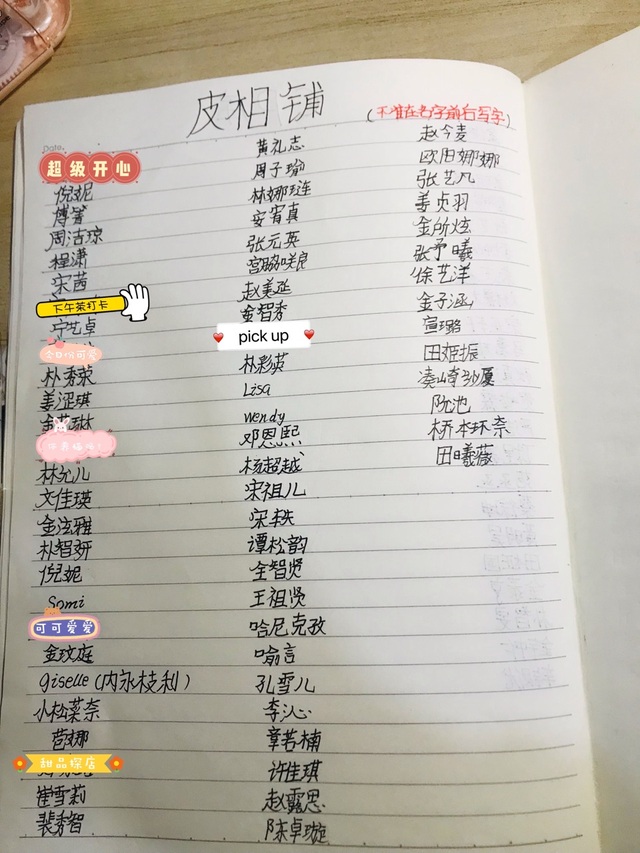 皮相铺
(不准在名字前后写字)
Date.
超级开心
倪妮
傅菁
周洁琼
程潇
宋茜
下午茶打卡
宁艺卓
朴秀荣
姜涩琪
林允儿
文佳瑛
金泫雅
朴智妍
倪妮
Somi
可可爱爱
金玟庭
giselle(内永枝利)
小松菜奈
苞娜
甜品探店
崔雪莉
裴秀智
黄礼志
周子瑜
林娜琏
安宥真
张元英
宫脇咲良
赵美延
金智秀
pick up
朴彩英
Lisa
wendy
邓恩熙
杨超越
宋祖儿
宋轶
谭松韵
全智贤
王祖贤
哈尼克孜
喻言
孔雪儿
李沁
章若楠
许佳琪
赵露思
陈卓璇
赵今麦
欧阳娜娜
张艺凡
姜贞羽
金所炫
张予曦
徐艺洋
金子涵
宣璐
田姬振
凑崎纱夏
阮池
桥本环奈
田曦薇